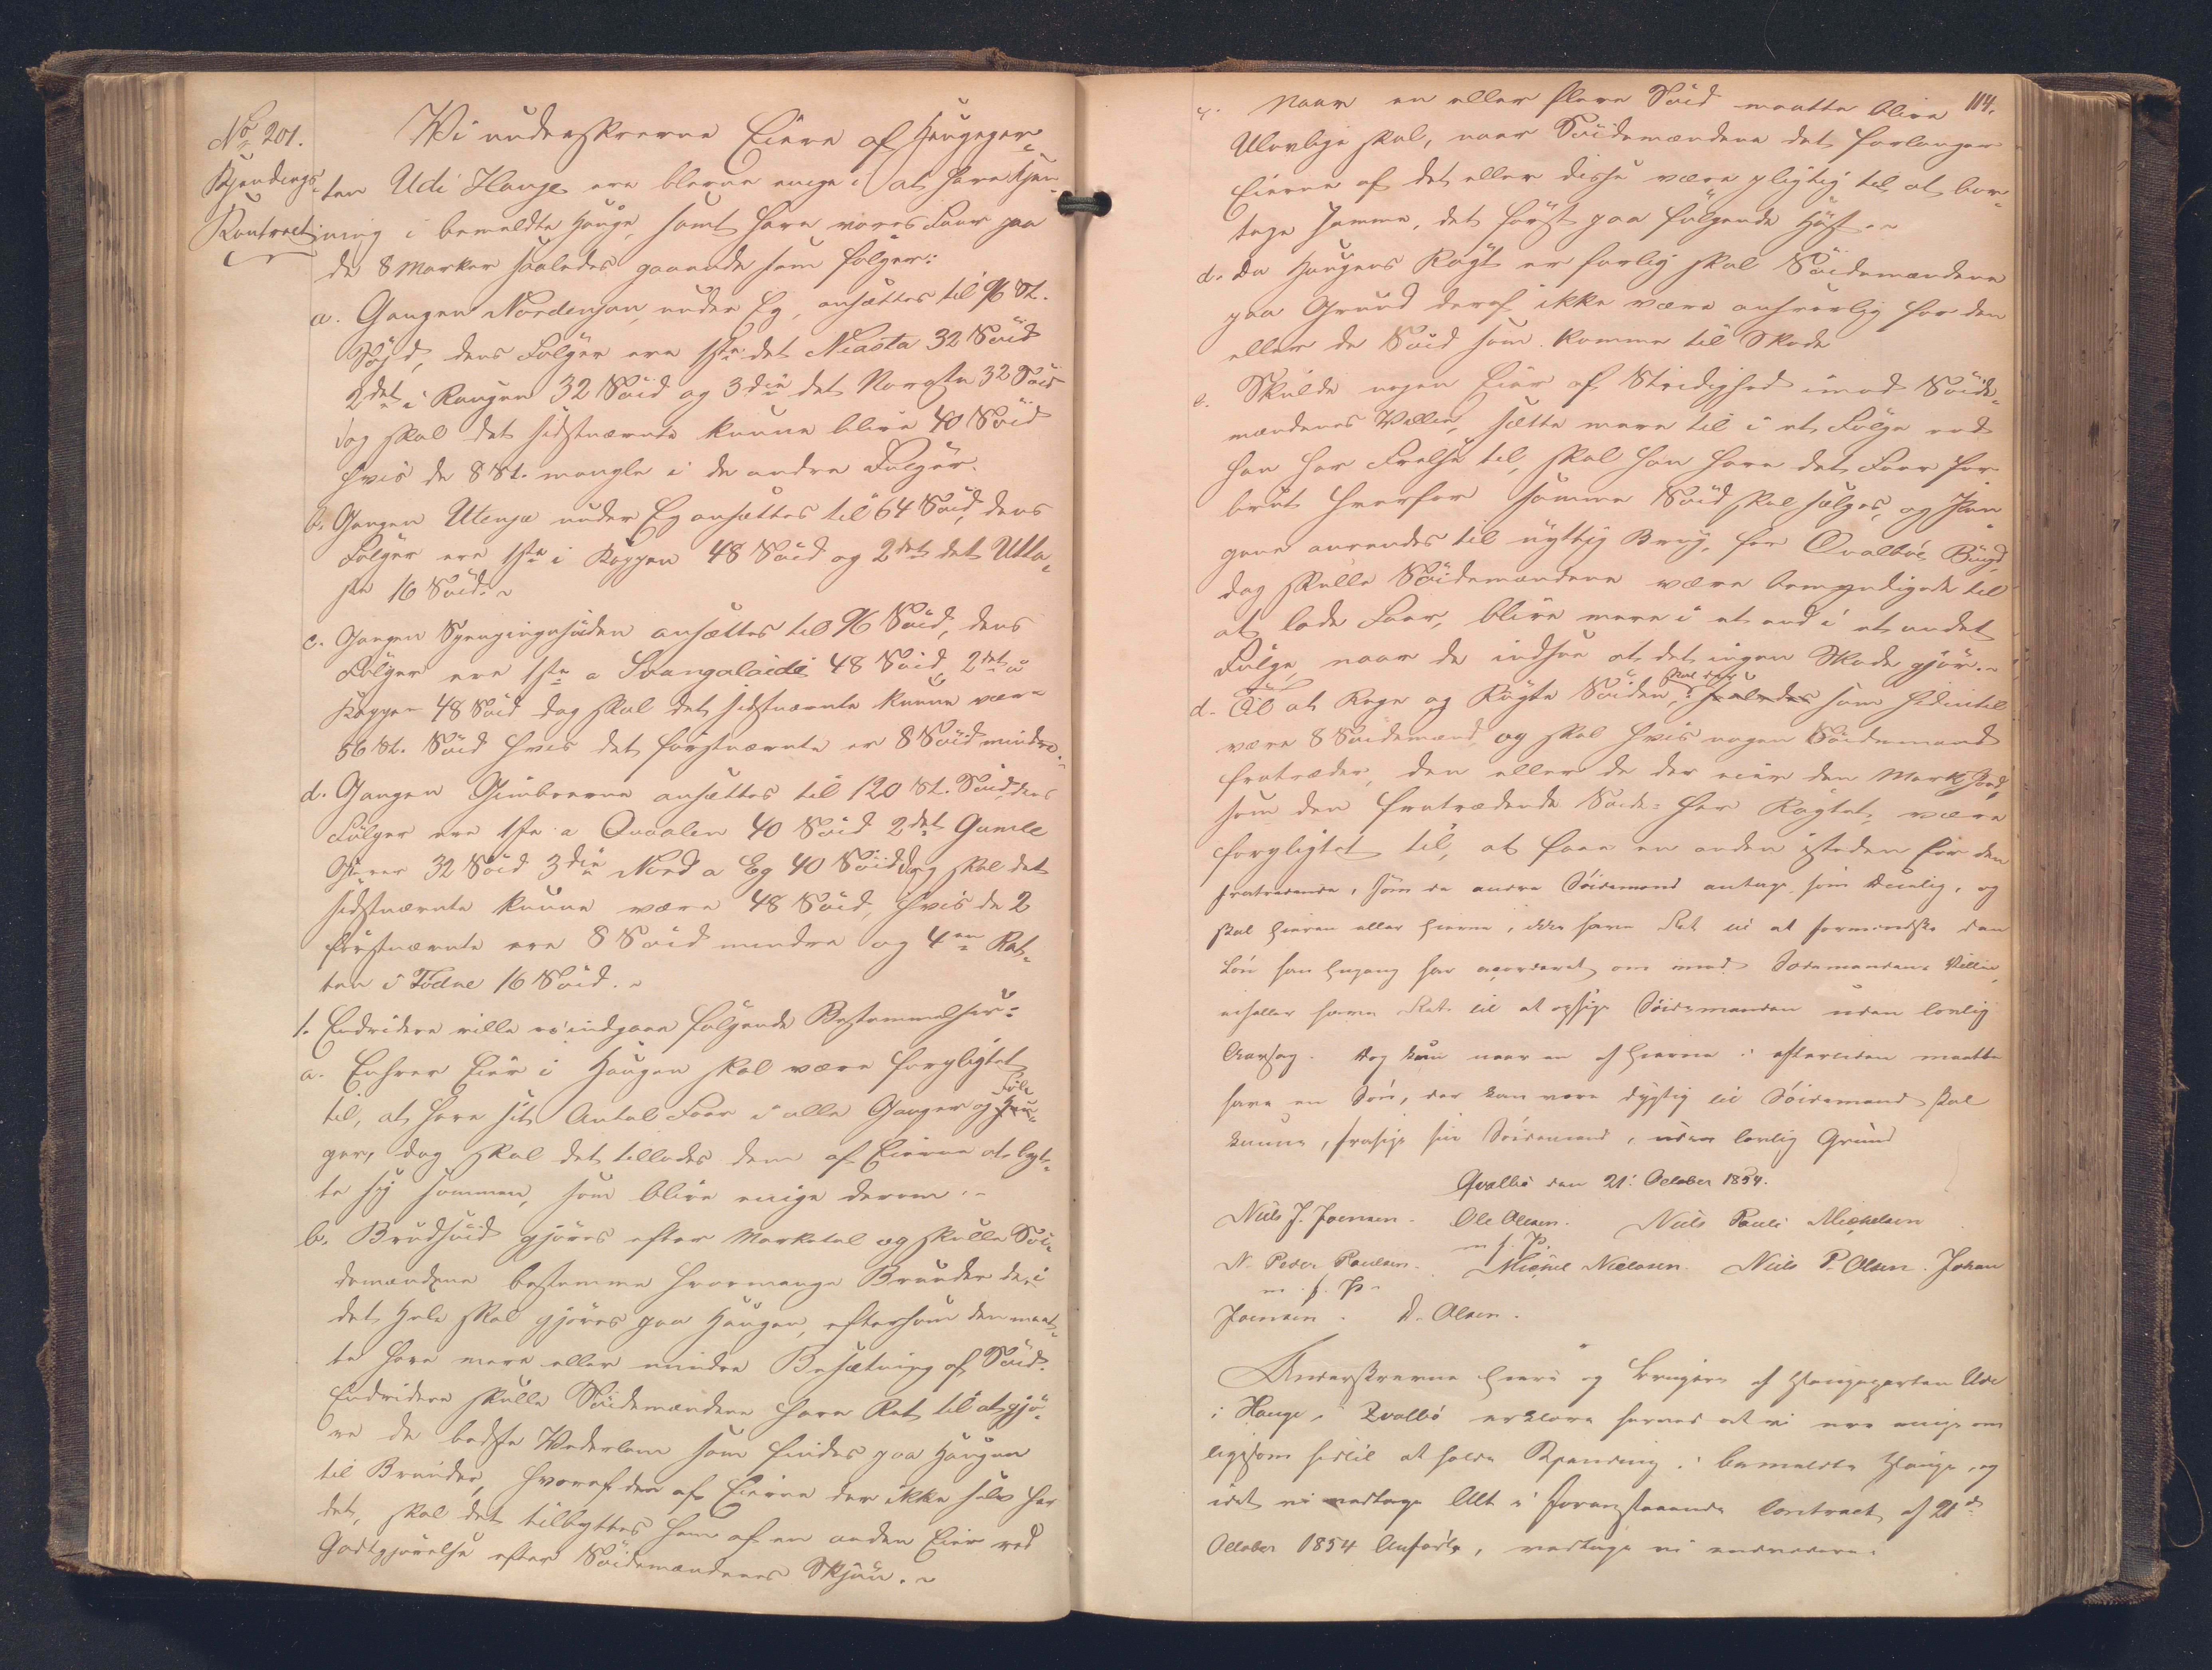 No 201.
Kjendings
Kontract
Vi underskrevne Eiere af Haugepar-
ten Udi Hauge ere blevne enige i at have Kjen-
ning i bemeldte Hauge, samt have vores Faar paa
de 8 Marker saaledes gaaende som følger:
a. Gangen Nordenfan, under Eg, ansættes til 96 St.
Søjd, dens Følger ere 1ste det Niasta 32 Søid
2det i Raugen 32 Søid og 3die det Norasta 32 Søid
dog skal det sidstnævnte kunne blive 40 Søid
hvis de 8 St. mangle i de andre Følger.
b. Gangen Utenfæ under Eg ansættes til 64 Søid, dens
Følger ere 1ste i Koppen 48 Søid og 2det det Utta-
sta 16 Søid.
c. Gangen Spengingasuiden ansættes til 96 Søid, dens
Følger ere 1ste a Svangalaidi 48 Søid, 2det i
Koppen 48 Søid dog skal det sidstnævnte kunne være
56 St. Søid hvis det førstnævnte er 8 Søid mindre.
d. Gangen Gimbrerne ansættes til 120 St. Søid, dens
Følger ere 1ste a Qvaalen 40 Søid 2det Gamle
32 Søid 3die Nord a Eg 40 Søid dog skal det
sidstnævnte kunne være 48 Søid, hvis de 2
førstnævnte ere 8 Søid mindre og 4en Rat-
ten i Fødne 16 Søid.
1. Endvidere ville vi indgaae følgende Bestemmelser:
a. Enhver Eier i Haugen skal være forpligtet
til, at have sit Antal Faar i alle Ganger og Føl-
ger, dog skal det tillades dem af Eierne at byt-
te sig sammen, som blive enige derom.
b. Brudsøid gjøres efter Marketal og skulle Søi-
demændene bestemme hvormange Brunder der i
det Hele skal gjøres paa Haugen, eftersom den maat-
te have mere eller mindre Besætning af Søid.
Endvidere skulle Søidemændene have Ret til at gjø-
re de bedste Væderlam som findes paa Haugen
til Brunder, hvoraf den af Eierne der ikke selv har
det, skal det tilbyttes ham af en anden Eier ved
Godtgjørelse efter Søidemændenes Skjøn.
114.
c. Naar en eller flere Søid maatte blive
Ulovlige skal, naar Søidemændene det forlanger
Eierne af det eller disse være pligtig til at bor-
tage samme, det først paa følgende Høst.
d. Da Haugens Røgt er farlig skal Søidemændene
paa Grund deraf ikke være ansvarlig for den
eller de Søid som komme til Skade
e. Skulde nogen Eier af Stridighed imod Søide-
mændenes Villie, sætte mere til i et Følge end
han har Frelse til, skal han have det Faar for-
brudt hvorfor samme Søid skal sælges, og Pen-
gene anvendes til nyttig Brug, for Qvalbø Bøigd
dog skulle Søidemændene være bemyndigede til
at lade Faar, blive mere i et end i et andet
Følge, naar de indsee at det ingen Skade gjør.
d. Til at Rege og Røgte Søiden, skal som hidintil
være 8 Søidemænd, og skal hvis nogen Søidemand
fratræder, den eller de der eier den Mark Jord,
som den fratrædende Søide- har Røgtet, være
forpligtet til, at faae en anden isteden for den
fratrædende, som de andre Søidemænd antage som duelig, og
skal Eieren eller Eierne, ikke have Ret til at formindske den
Løn han Engang har accorderet om imod Søidemandens Villie,
eiheller have Ret til at opsige Søidemanden uden lovlig
Aarsag. Dog kun naar en af Eierne i eftertiden maatte
have en Søn, der kan være dygtig til Søidemand skal
kunne, frasige sin Søidemand, uden lovlig Grund
Qvalbø den 21. October 1854.
Niels J. Joensen. Ole Olesen. Niels Pauli Michelsen
m. f. P.
N. Peder Paulsen. Michel Nielasen. Niels P. Olsen. Johan
m. f. P.
Joensen. D. Olsen.
Underskrevne Eiere og Brugere af Haugeparten Ude
i Hauge, i Qvalbø erklære herved at vi ere enige om
ligesom hidtil at holde Kjenning i bemeldte Hauge, og
idet vi vedtage Alt i foranstaaende Contract af 21de
October 1854 Anførte, vedtage vi endvidere: